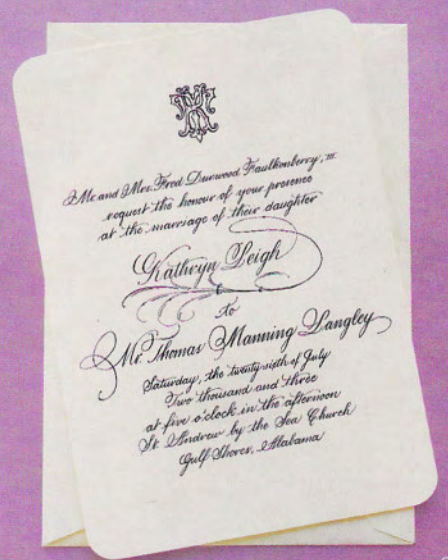 Mr. and Mrs. Fred Durwood Faulkenberry, III
request the honour of your presence
at the marriage of their daughter
Kathryn Leigh
to
Mr. Thomas Manning Langley
Saturday, the twenty-sixth of July
Two thousand and three
at five o'clock in the afternoon
St. Andrew by the Sea Church
Gulf Shores, Alabama